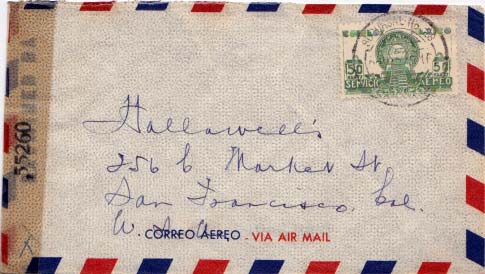 50 50
SERVICIO AEREO
55260
Hallawell's
256 C Market St.
San Francisco, Cal.
U.S.A.
CORREO AEREO - VIA AIR MAIL